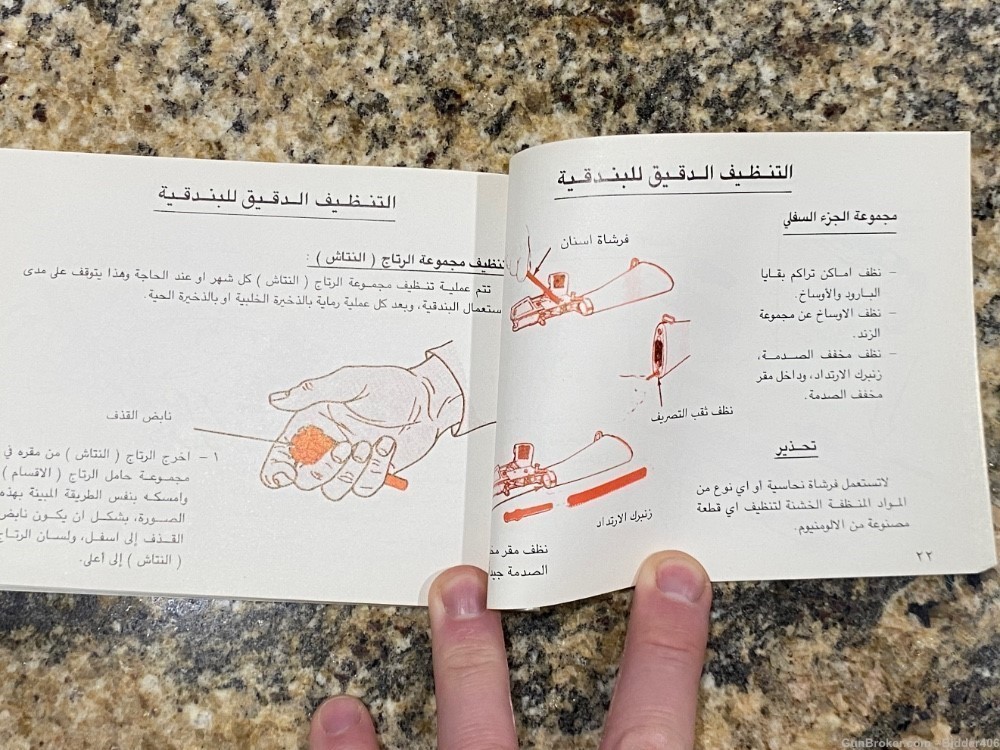 التنظيف الدقيق للبندقية
مجموعة الجزء السفلي
فرشاة اسنان
– نظف اماكن تراكم بقايا
البارود والأوساخ.
– نظف الاوساخ عن مجموعة
الزند.
– نظف مخفف الصدمة،
زنبرك الارتداد، وداخل مقر
مخفف الصدمة.
نظف ثقب التصريف
تحذير
لاتستعمل فرشاة نحاسية او أي نوع من
المواد المنظفة الخشنة لتنظيف اي قطعة
مصنوعة من الالومنيوم.
زنبرك الارتداد
نظف مقر
الصدمة
٢٢
التنظيف الدقيق للبندقية
تنظيف مجموعة الرتاج ( النتاش ) :
تتم عملية تنظيف مجموعة الرتاج ( النتاش ) كل شهر او عند الحاجة وهذا يتوقف على مدى
ستعمال البندقية، وبعد كل عملية رماية بالذخيرة الخلبية او بالذخيرة الحية.
نابض القذف
١ – اخرج الرتاج ( النتاش ) من مقره في
مجموعة حامل الرتاج ( الاقسام )
وامسكه بنفس الطريقة المبينة بهذه
الصورة، بشكل ان يكون نابض
القذف إلى اسفل، ولسان الرتاج
( النتاش ) إلى أعلى.
GunBroker.com - Bidder408